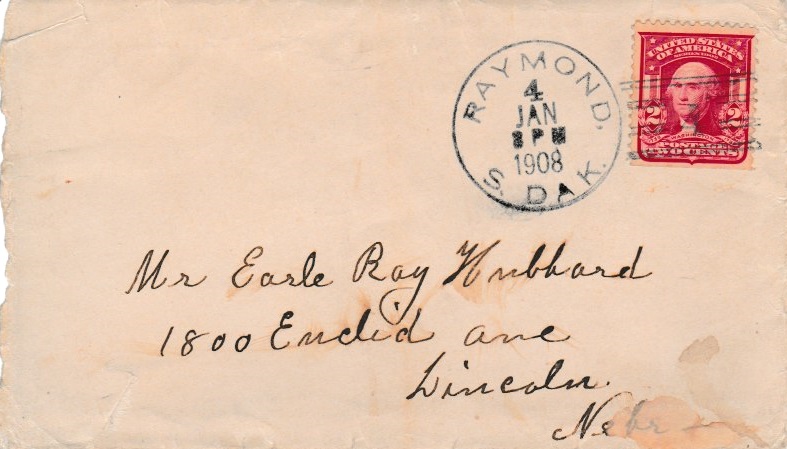 RAYMOND,
4
JAN
8 PM
1908
S. DAK.
UNITED STATES
OF AMERICA
2 2
WASHINGTON
POSTAGE
TWO CENTS
Mr Earle Ray Hubbard
1800 Euclid ave
Lincoln.
Nebr